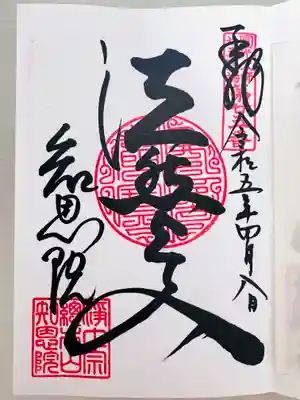 令和五年四月八日
法然上人
知恩院
浄土宗
總本山
知恩院